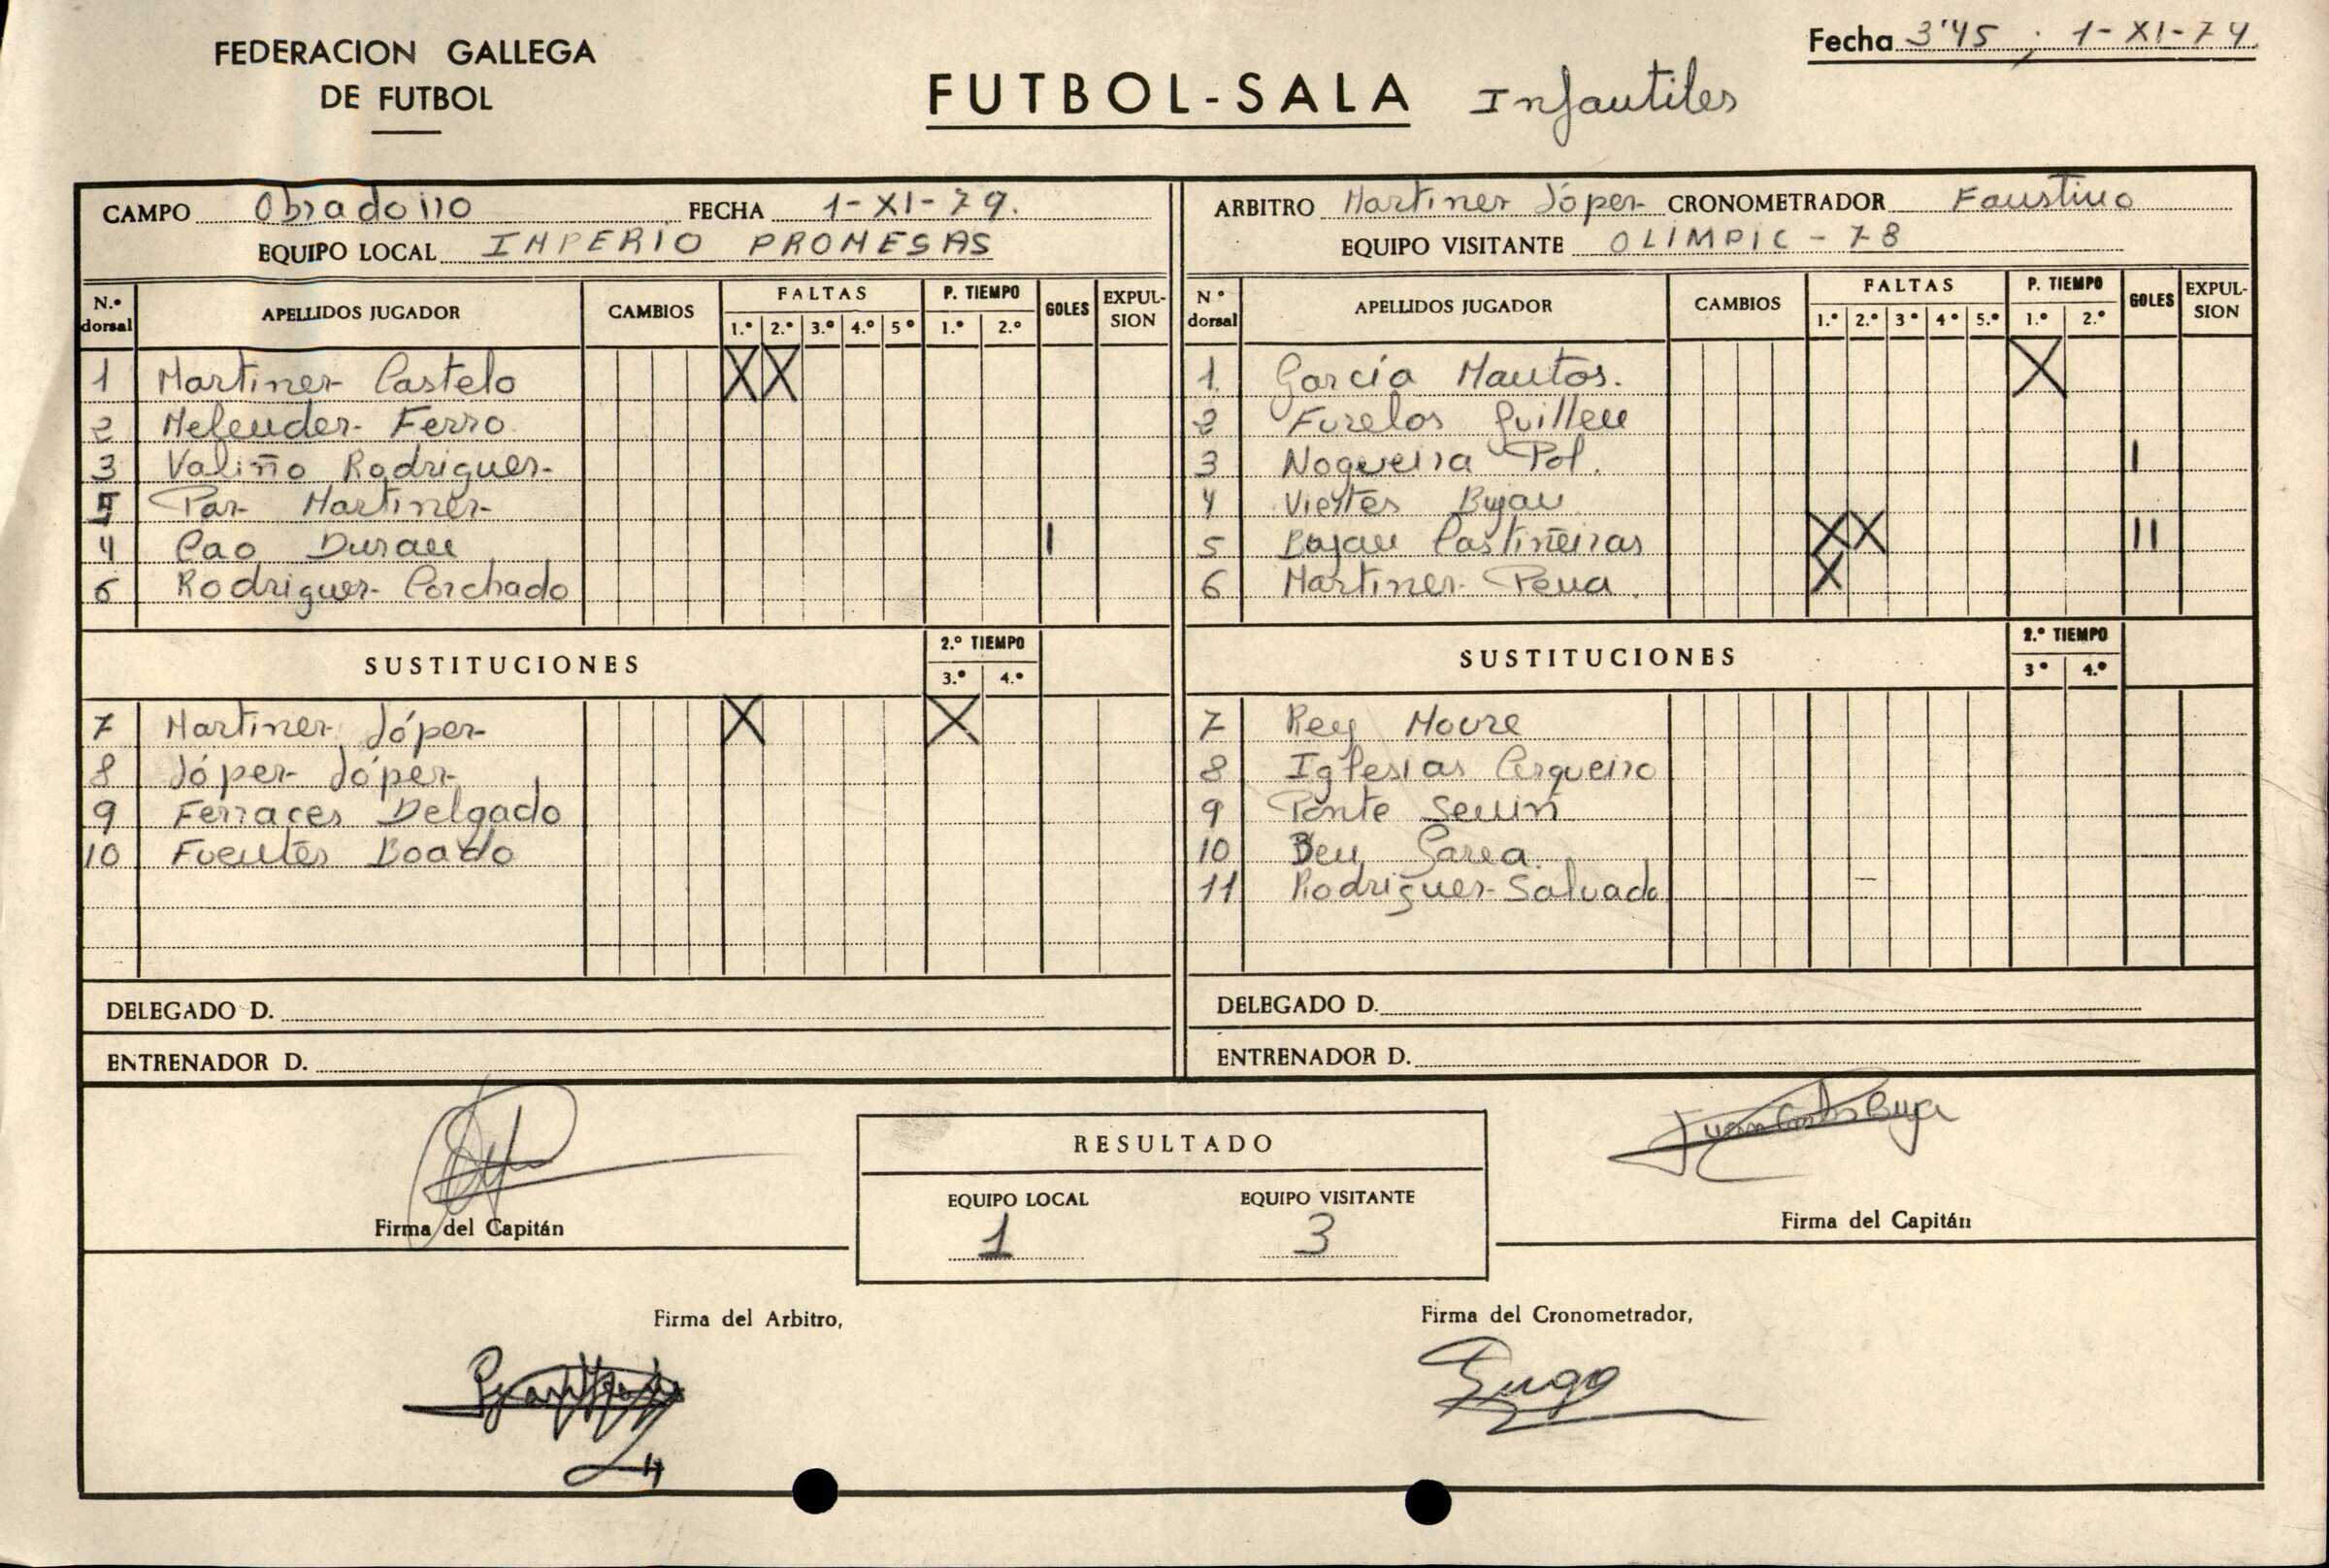 FEDERACION GALLEGA
DE FUTBOL
FUTBOL-SALA Infantiles
Fecha 3'45 ; 1-XI-79.
CAMPO Obradoiro FECHA 1-XI-79.
EQUIPO LOCAL IMPERIO PROMESAS
N.º dorsal APELLIDOS JUGADOR CAMBIOS FALTAS 1.º 2.º 3.º 4.º 5º P. TIEMPO 1.º 2.º GOLES EXPULSION
1 Martinez Castelo X X
2 Melender Ferro
3 Valiño Rodriguez
5 Paz Martinez
4 Cao Duran I
6 Rodriguez Corchado
SUSTITUCIONES 2.º TIEMPO 3.º 4.º
7 Martinez López X X
8 López López
9 Ferraces Delgado
10 Fuentes Boado
DELEGADO D.
ENTRENADOR D.
ARBITRO Martinez López CRONOMETRADOR Faustino
EQUIPO VISITANTE OLIMPIC-78
Nº dorsal APELLIDOS JUGADOR CAMBIOS FALTAS 1.º 2.º 3º 4º 5.º P. TIEMPO 1.º 2.º GOLES EXPULSION
1. García Mantos. X
2 Furelos Guillen
3 Nogueira Pol. I
4 Vieites Bujan
5 Bujan Castiñeiras X X II
6 Martinez Pena. X
SUSTITUCIONES 2.º TIEMPO 3º 4.º
7 Rey Moure
8 Iglesias Cerqueiro
9 Ponte Senin
10 Rey Garea.
11 Rodriguez Salvado
DELEGADO D.
ENTRENADOR D.
RESULTADO
EQUIPO LOCAL EQUIPO VISITANTE
1 3
Firma del Capitán
Firma del Capitán
Firma del Arbitro,
Firma del Cronometrador,